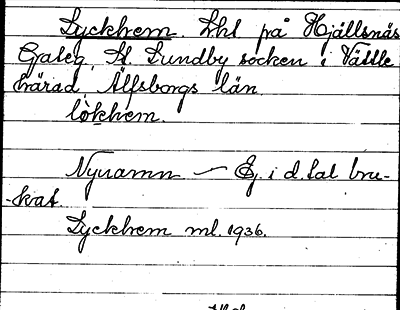 Lyckhem. Lht på Hjällsnäs
Gråleg. St. Lundby socken i Vättle
härad, Älfsborgs län.
lỳkhem.
Nynamn — Ej i d. tal bru-
-kat.
Lyckhem ml. 1936.